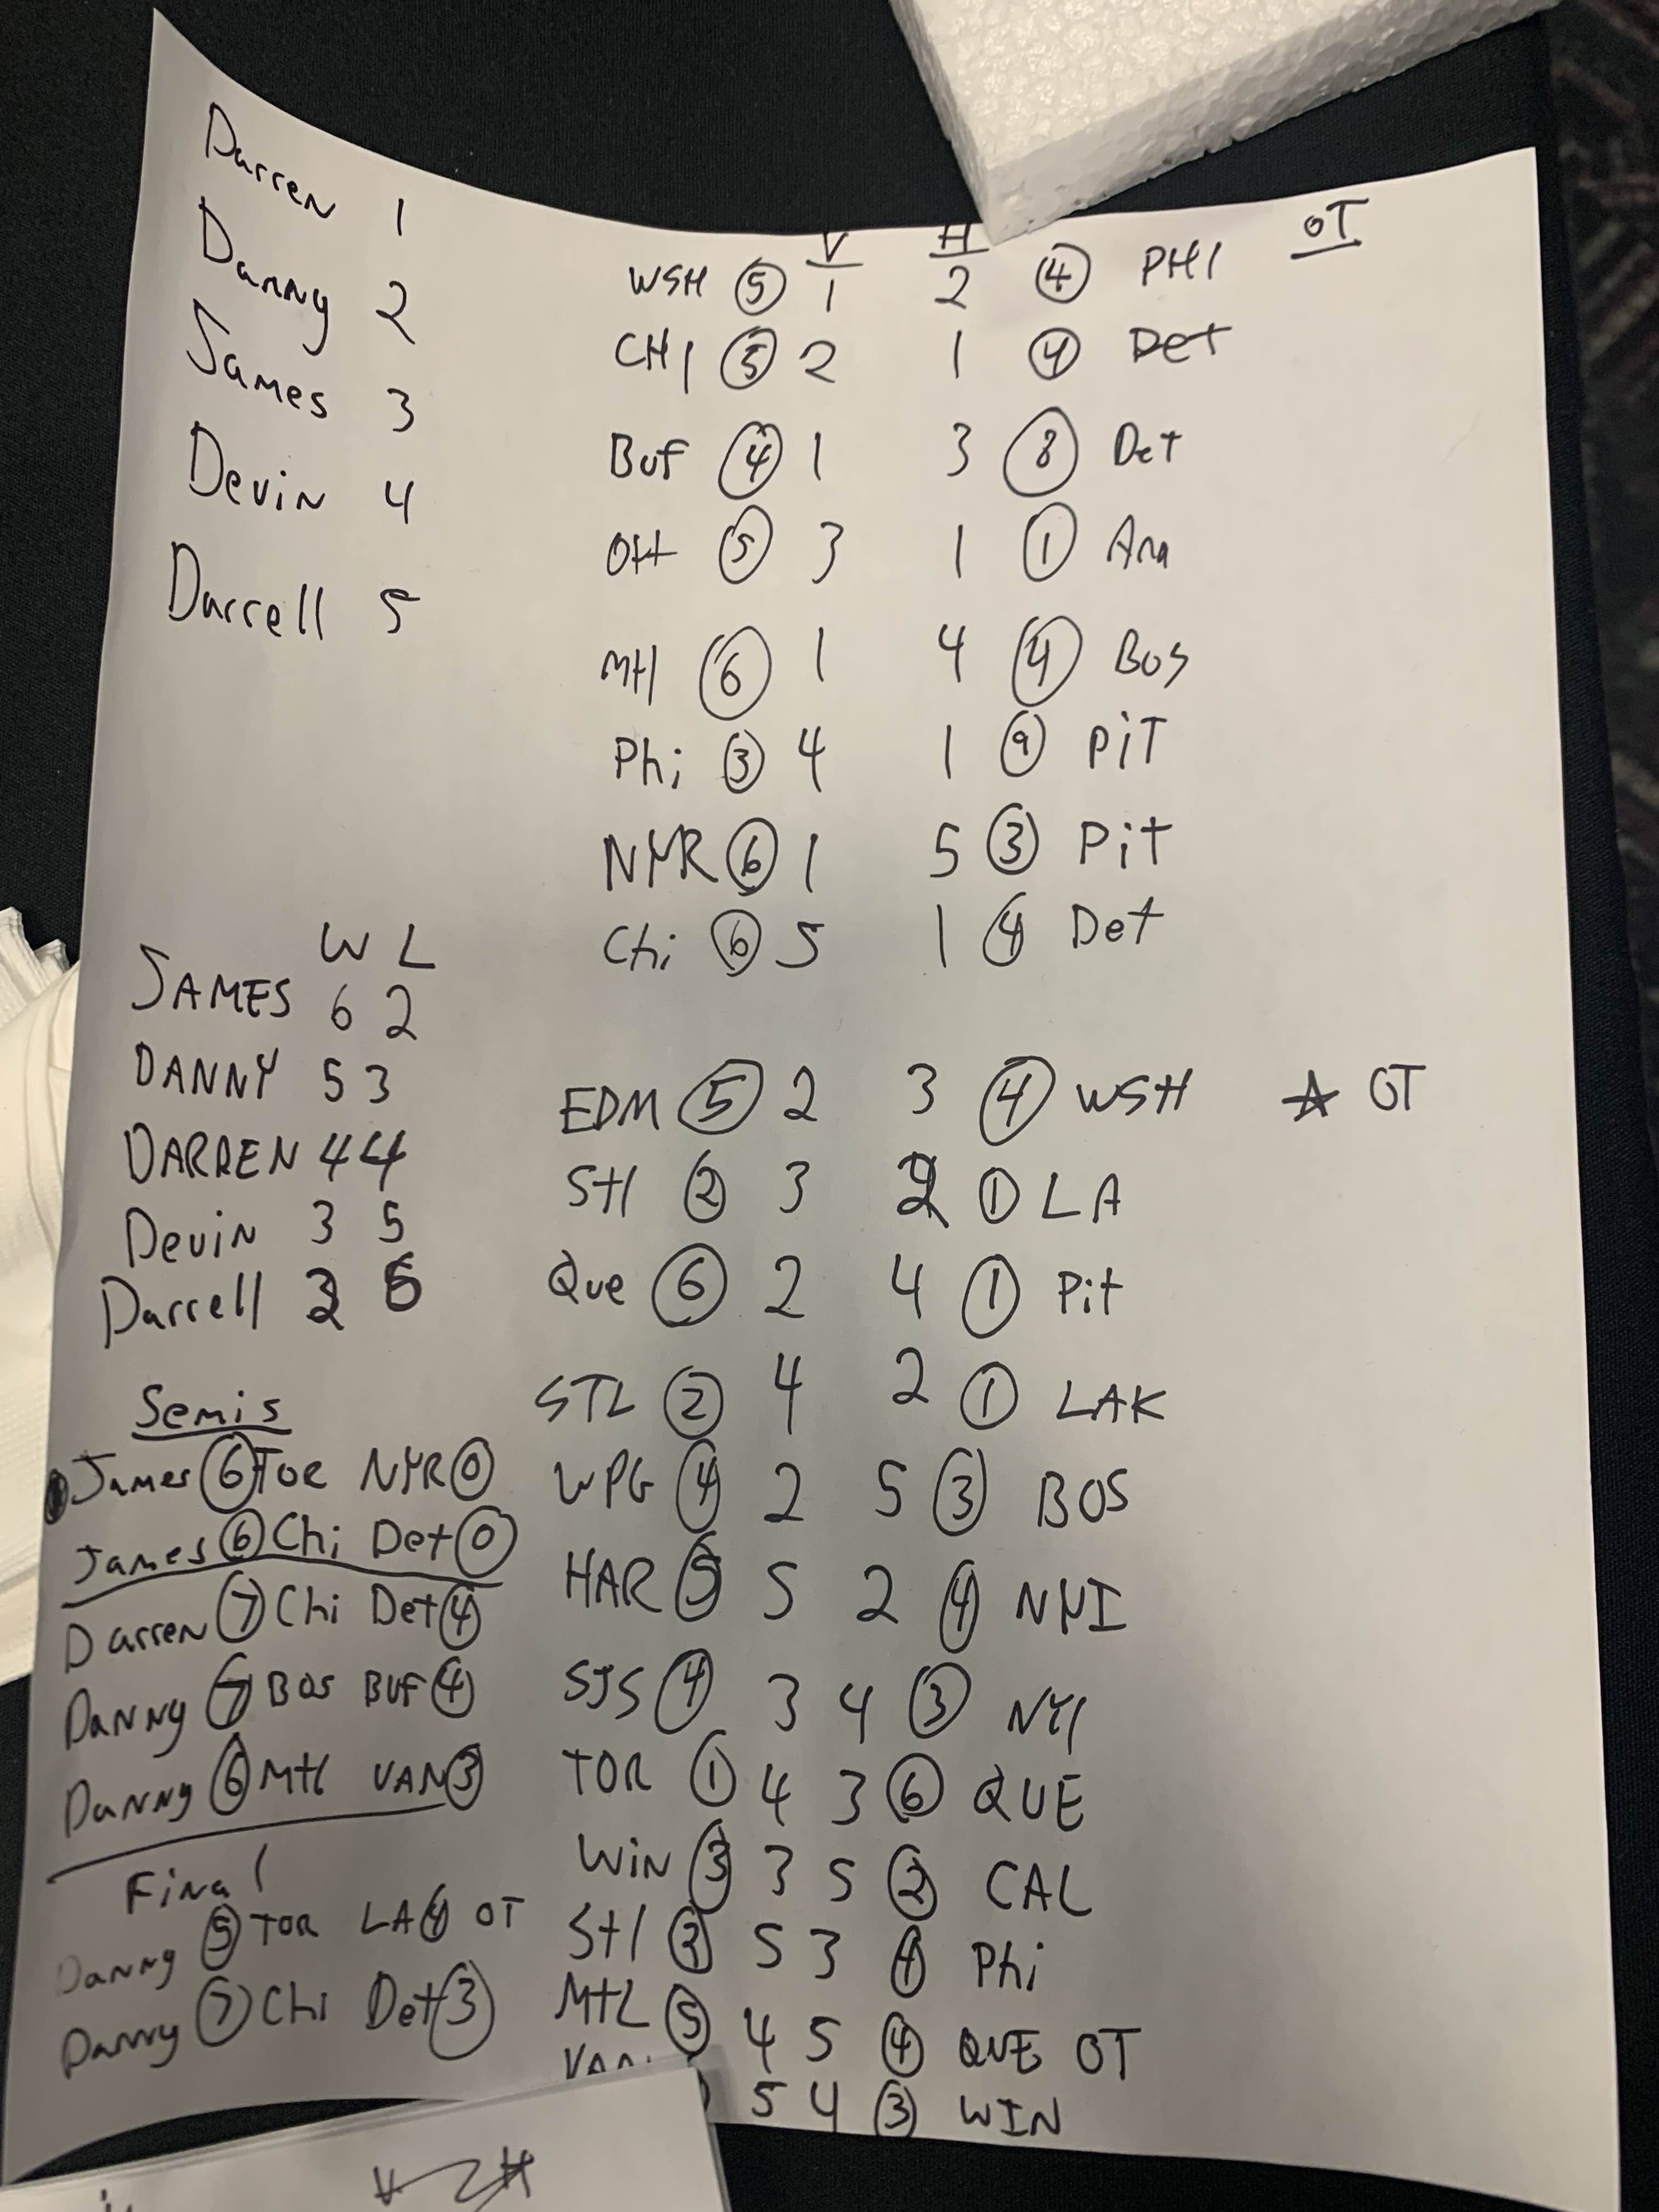 Darren 1
Danny 2
James 3
Devin 4
Darrell 5
V H OT
WSH 5 1 2 4 PHI
CHI 5 2 1 4 Det
Buf 4 1 3 8 Det
Ott 5 3 1 1 Ana
Mtl 6 1 4 4 Bos
Phi 3 4 1 9 PiT
NYR 6 1 5 3 Pit
Chi 6 5 1 4 Det
EDM 5 2 3 4 WSH ☆ OT
Stl 2 3 2 1 LA
Que 6 2 4 1 Pit
STL 2 4 2 1 LAK
WPG 4 2 5 3 BOS
HAR 5 5 2 4 NYI
SJS 4 3 4 3 NYI
TOR 1 4 3 6 QUE
WiN 3 3 5 2 CAL
Stl 5 3 4 Phi
MtL 5 4 5 4 QUE OT
VAN 5 4 3 WIN
W L
JAMES 6 2
DANNY 5 3
DARREN 4 4
Devin 3 5
Darrell 2 6
Semis
James 6 TOR NYR 0
James 6 Chi Det 0
Darren 7 Chi Det 4
Danny 7 BOS BUF 4
Danny 6 Mtl VAN 3
Final
Danny 5 TOR LA 4 OT
Danny 7 Chi Det 3
V H